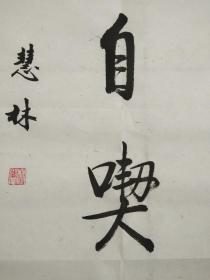 自喫
慧林